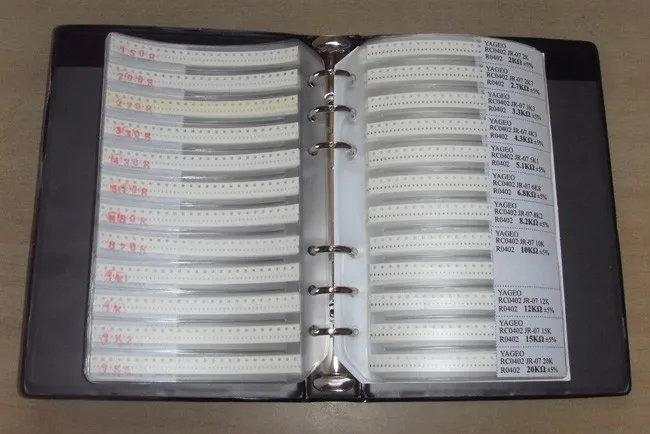 150R
200R
270R
330R
470R
510R
680R
820R
1K
1K
1K2
YAGEO
RC0402 JR-07 2K
R0402 2KΩ ±5%
YAGEO
RC0402 JR-07 2K7
R0402 2.7KΩ ±5%
YAGEO
RC0402 JR-07 3K3
R0402 3.3KΩ ±5%
YAGEO
RC0402 JR-07 4K3
R0402 4.3KΩ ±5%
YAGEO
RC0402 JR-07 5K1
R0402 5.1KΩ ±5%
YAGEO
RC0402 JR-07 6K8
R0402 6.8KΩ ±5%
YAGEO
RC0402 JR-07 8K2
R0402 8.2KΩ ±5%
YAGEO
RC0402 JR-07 10K
R0402 10KΩ ±5%
YAGEO
RC0402 JR-07 12K
R0402 12KΩ ±5%
YAGEO
RC0402 JR-07 15K
R0402 15KΩ ±5%
YAGEO
RC0402 JR-07 20K
R0402 20KΩ ±5%